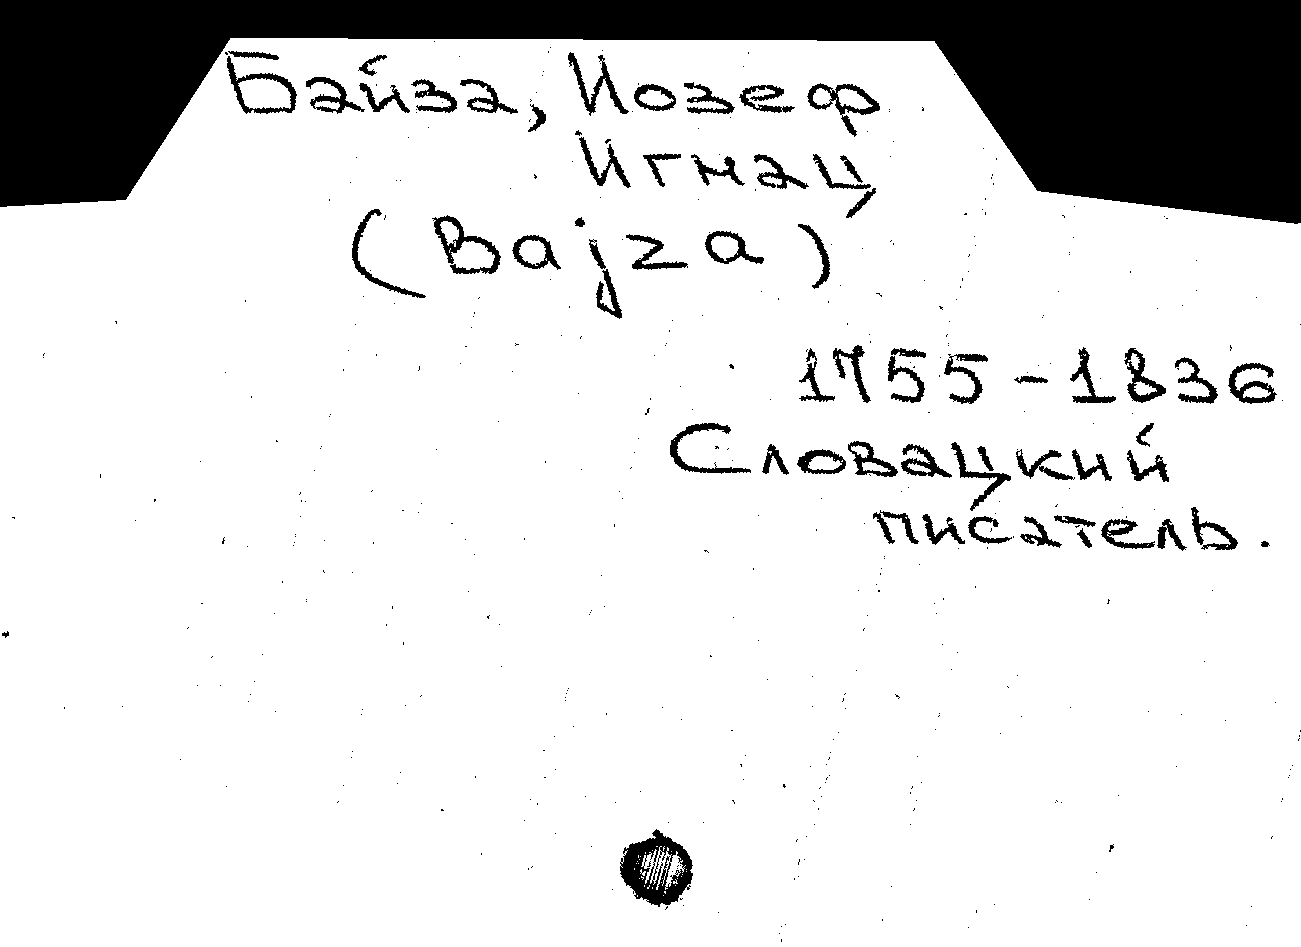 Байза, Иозеф
Игнац
(Bajza)
1755-1836
Словацкий
писатель.